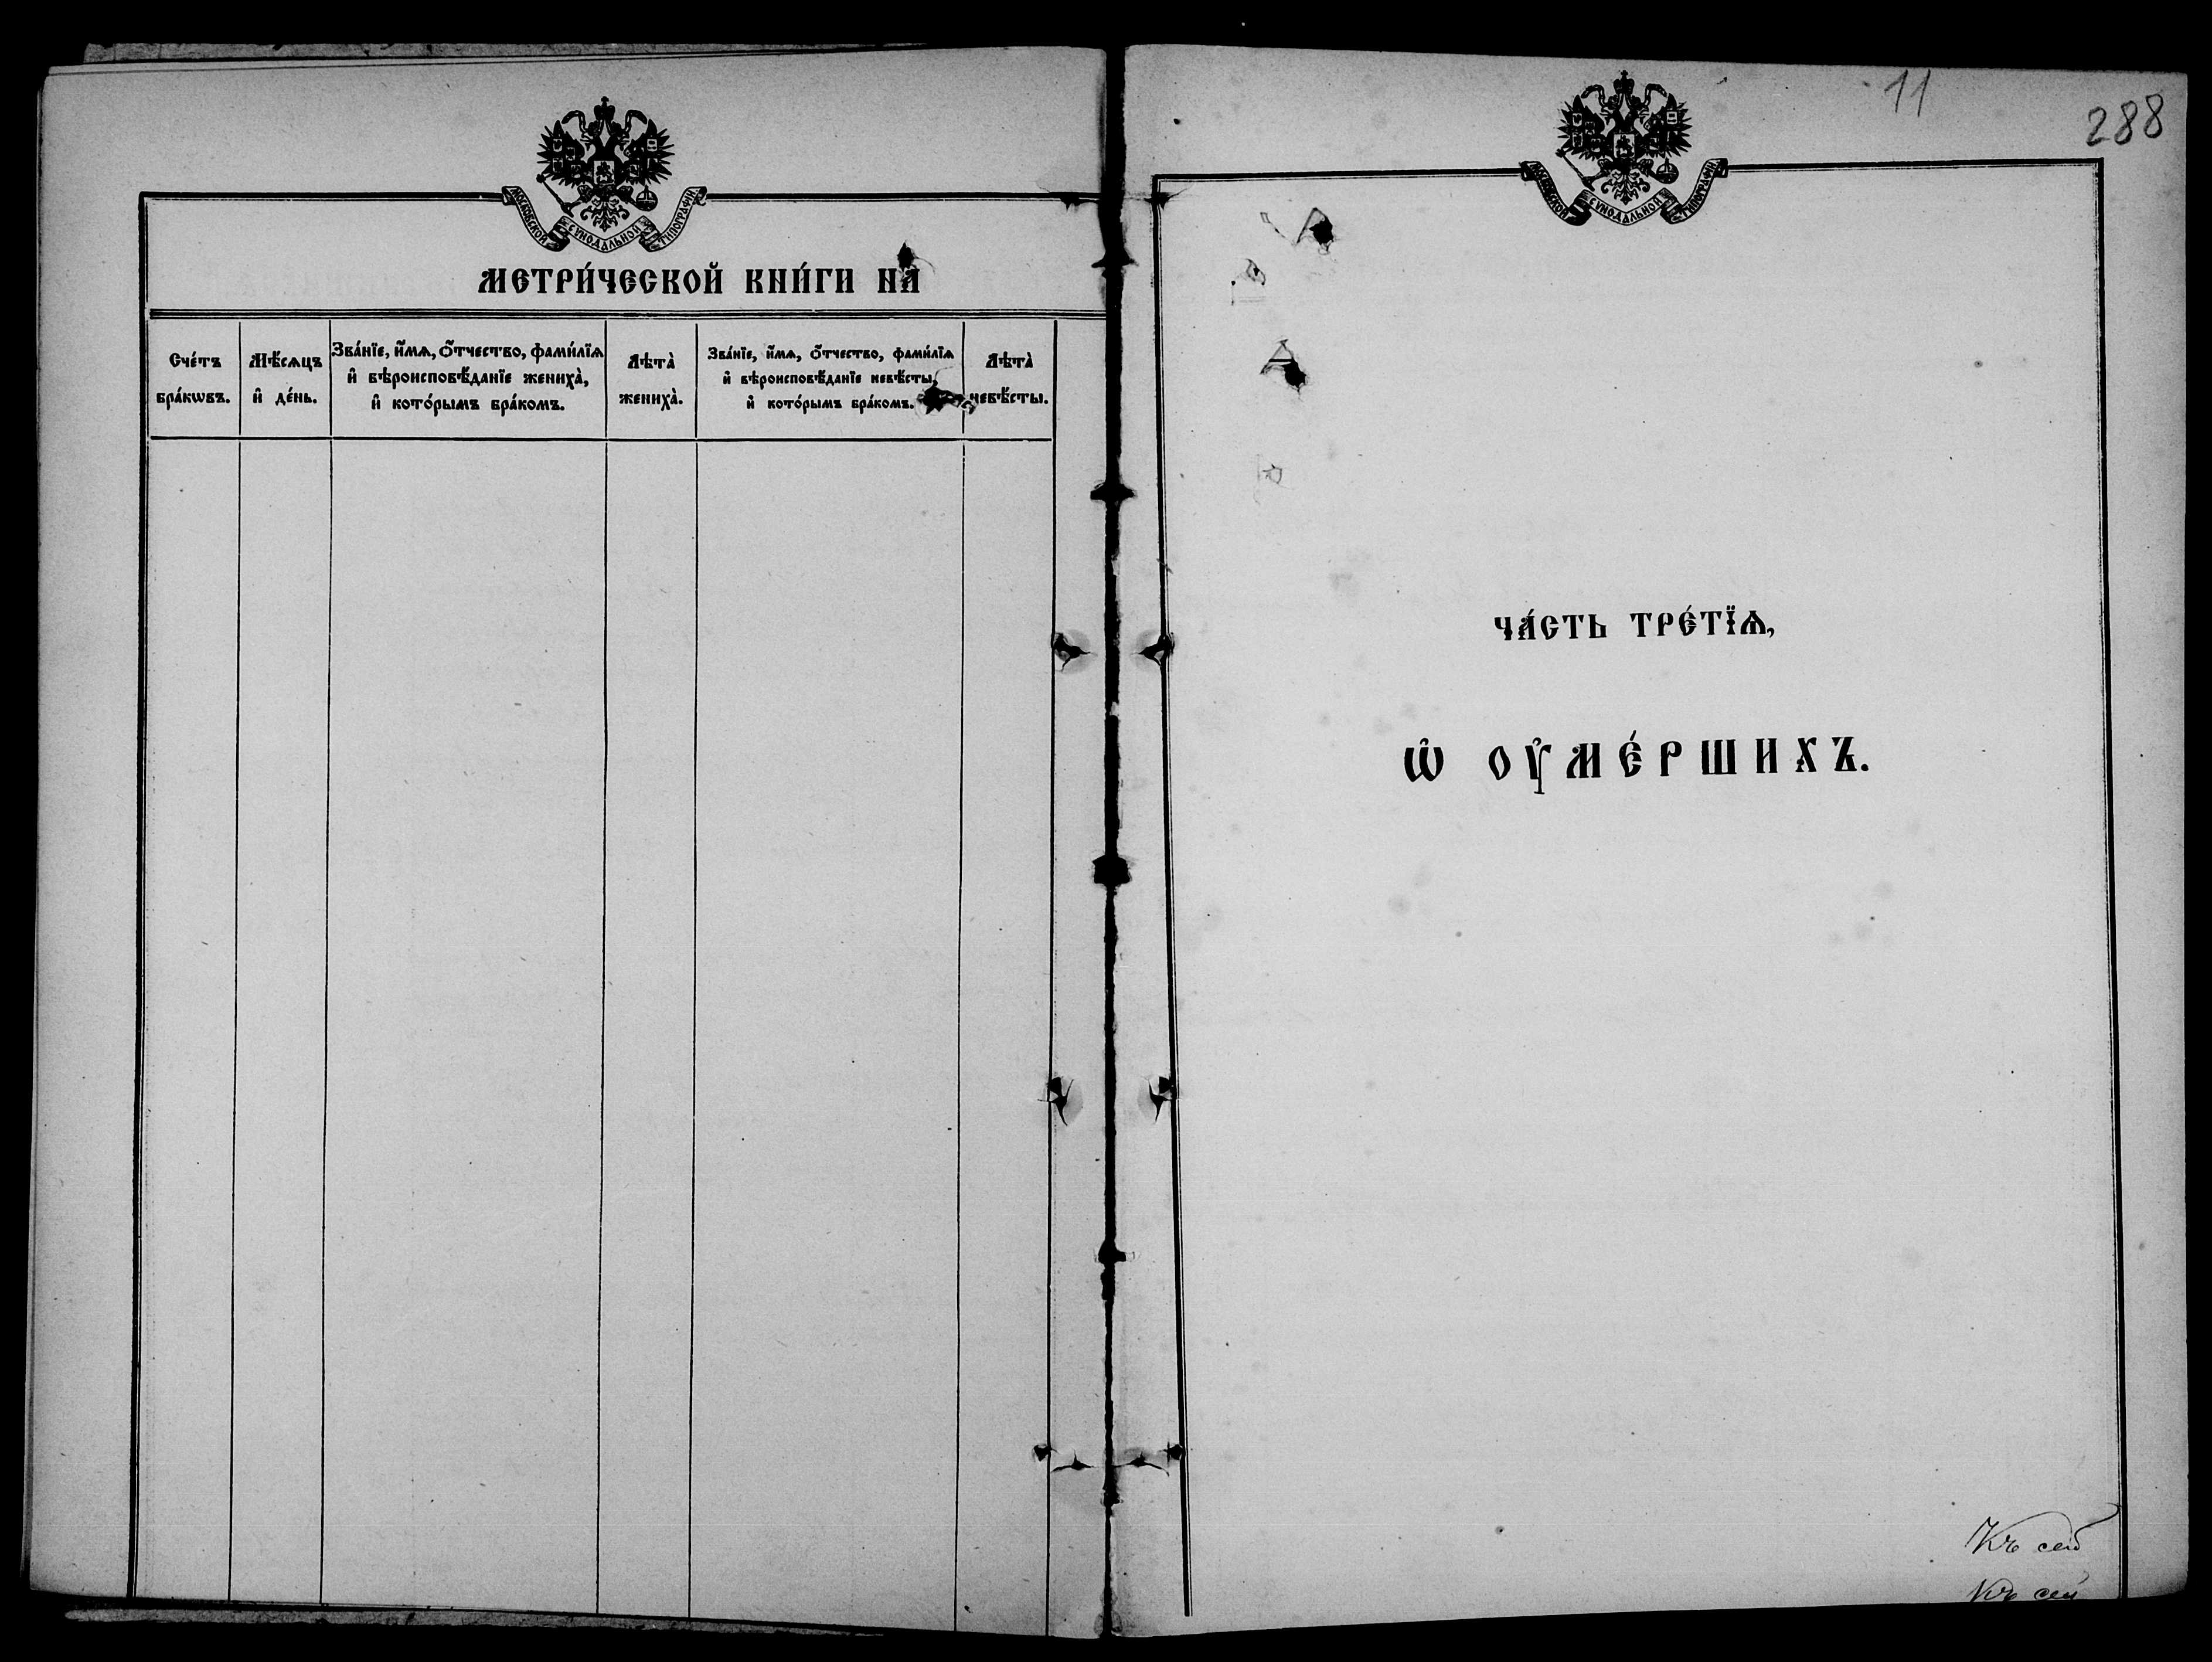 МОСКОВСКОЙ СѴНОДАЛЬНОЙ ТИПОГРАФІИ
МЕТРИ́ЧЕСКОЙ КНИ́ГИ НА̀
Сче́тъ
бра́кѡвъ.
Мѣ́сѧцъ
и҆ де́нь.
Зва́нїе, и҆́мѧ, ѻ҆́тчество, фами́лїѧ
и҆ вѣроисповѣ́данїе жениха̀,
и҆ кото́рымъ бра́комъ.
Лѣта̀
жениха̀.
Зва́нїе, и҆́мѧ, ѻ҆́тчество, фами́лїѧ
и҆ вѣроисповѣ́данїе невѣ́сты,
и҆ кото́рымъ бра́комъ.
Лѣта̀
невѣ́сты.
11
288
МОСКОВСКОЙ СѴНОДАЛЬНОЙ ТИПОГРАФІИ
ЧА́СТЬ ТРЕ́ТЇѦ,
Ѡ҆ ОУ҆МЕ́РШИХЪ.
Къ сей
Къ сей